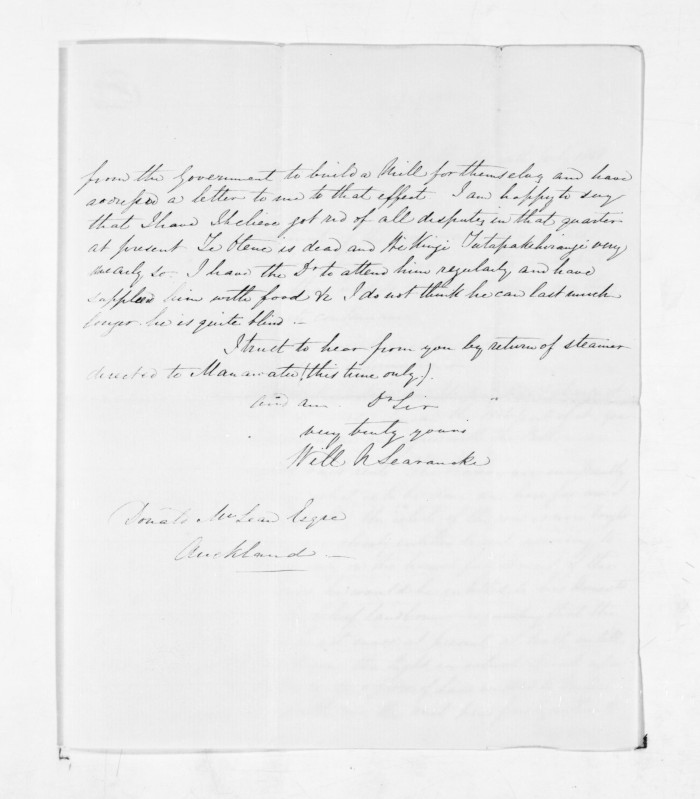 from the Government to build a Mill for themselves and have
addressed a letter to me to that effect I am happy to say
that I have I believe got rid of all disputes in that quarter
at present Te Otene is dead and Te Kingi Tutapakihirangi very
nearly so. I have the Dr to attend him regularly and have
supplied him with food &c I do not think he can last much
longer he is quite blind —
I trust to hear from you by return of steamer
directed to Manawatu (this time only).
and am Dr Sir
very truly yours
Will N Searancke
Donald McLean Esqre
Auckland —